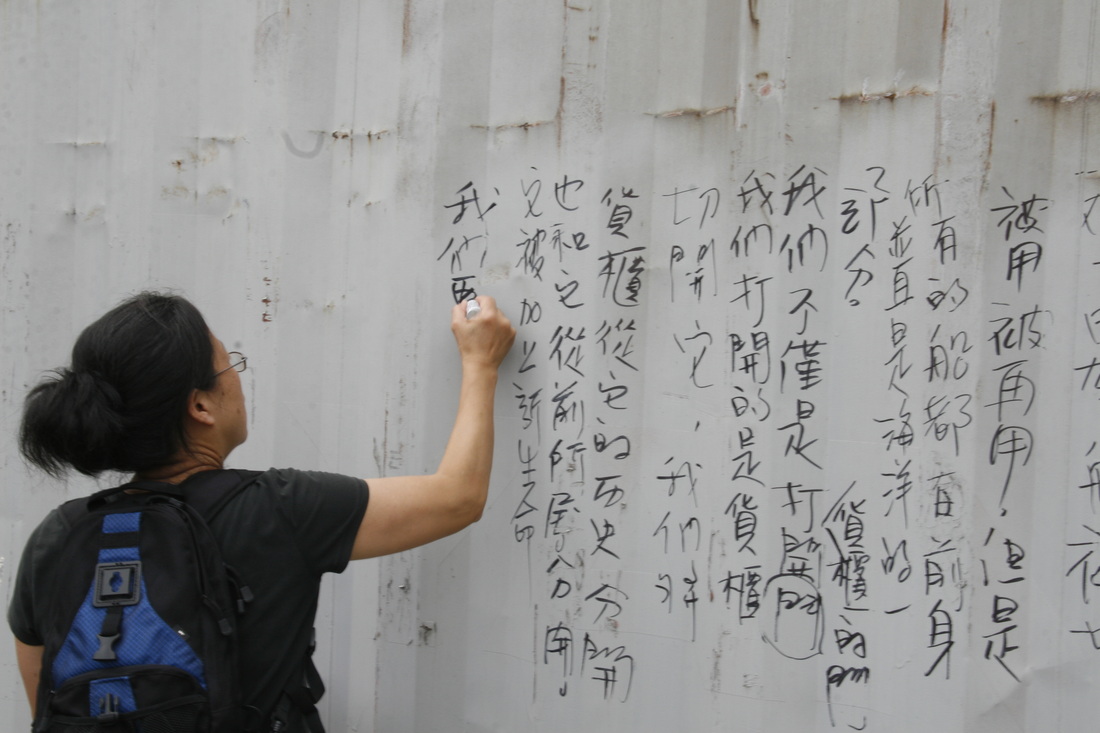 被用被再用，但是
所有的船都有前身
並且是海洋的一
部分。
貨櫃的門
我們不僅是打開
我們打開的是貨櫃
切開它，我們將
貨櫃從它的历史分開
也和它從前所屬分開，
它被加上新生命
我們